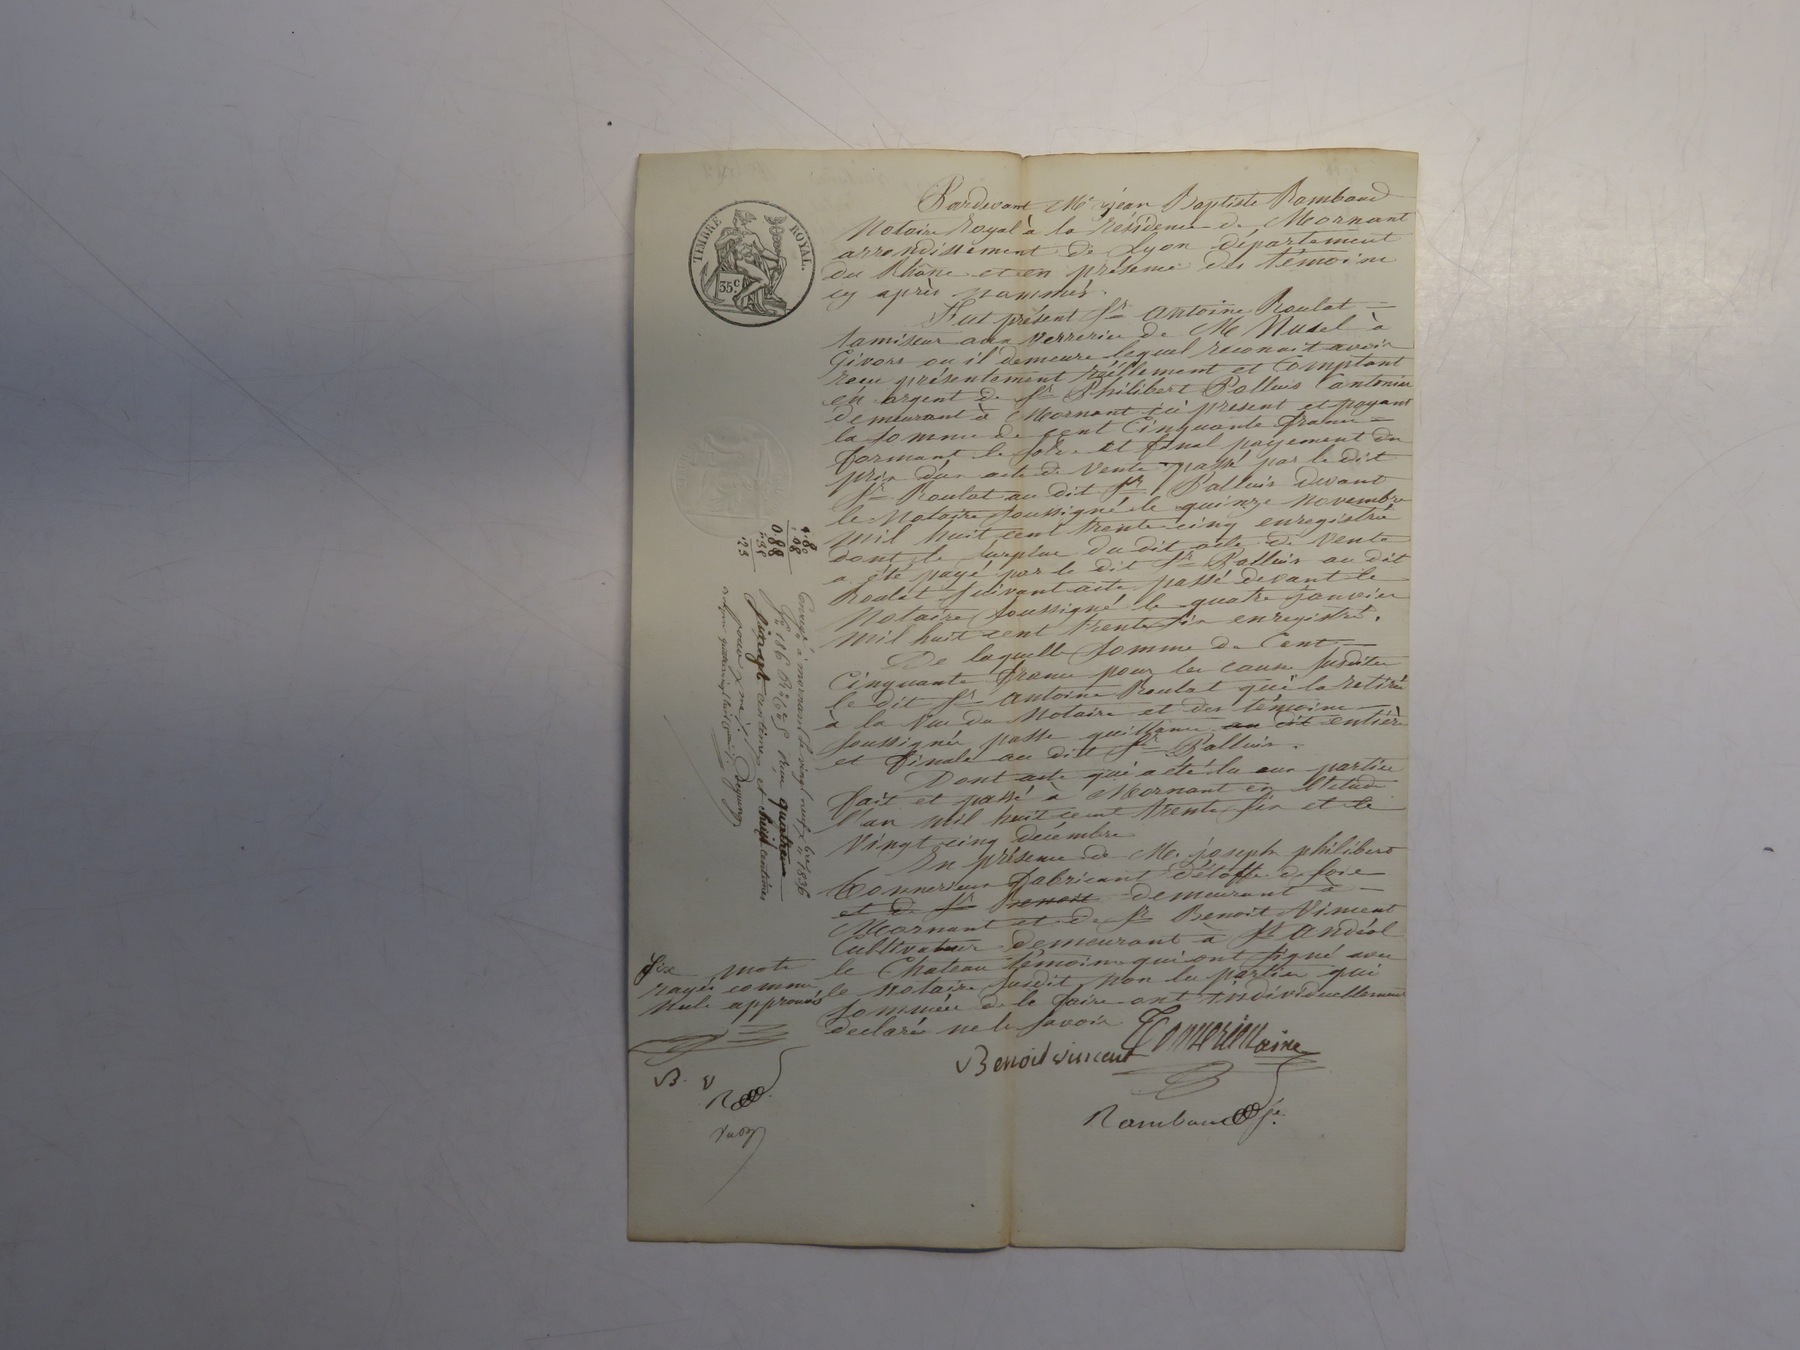 TIMBRE ROYAL.
35c
Pardevant Me jéan Baptiste Rambaud
Notaire Royal à la résidence de Mornant
arrondissement de Lyon département
du Rhône et en présence des témoins
cy après nommés.
Fut présent Sr Antoine Roulat
tamiseur aux verrerie de M
Givors ou il demeure lequel reconait avoir
recu présentement réellement et Comptant
en argent de Sr Philibert Palluis
demeurant à Mornant ici présent et payant
la somme de cent Cinquante francs
formant le solde et final payement du
prix d'un acte de vente passé par le dit
Sr Roulat au dit Sr Palluis devant
le Notaire soussigné le quinze novembre
mil huit cent trente cinq enregistré
dont le surplus du dit acte de vente
a été payé par le dit Sr Palluis au dit
Roulat suivant acte passé devant le
Notaire soussigné le quatre janvier
mil huit cent trente six enregistré.
De laquelle somme de Cent
Cinquante francs pour les causes susdites
le dit Sr Antoine Roulat qui la retirée
à la vue du Notaire et des témoins
soussignés passe quittance au dit entière
et finale au dit Sr Palluis.
Dont acte qui a été lu aux parties
fait et passé à Mornant en l'etude
l'an mil huit cent trente six et le
vingt cinq décembre
En présence de M. joseph philibert
fabricant d'étoffe de soie
et de Sr Benoit demeurant à
Mornant et de Sr Benoit Viment
Cultivateur demeurant à St Andéol
le Chateau témoins qui ont signé avec
le notaire susdit non les parties qui
sommées de le faire ont individuellement
declaré ne le savoir
Six mots
rayés comme
nuls approuvés
B. V
R
Benoit vincent
ainé
Rambaud
à mornant le vingt neuf Xbre 1836
fo 186 Ro
quatre
vingt centimes et huit centimes